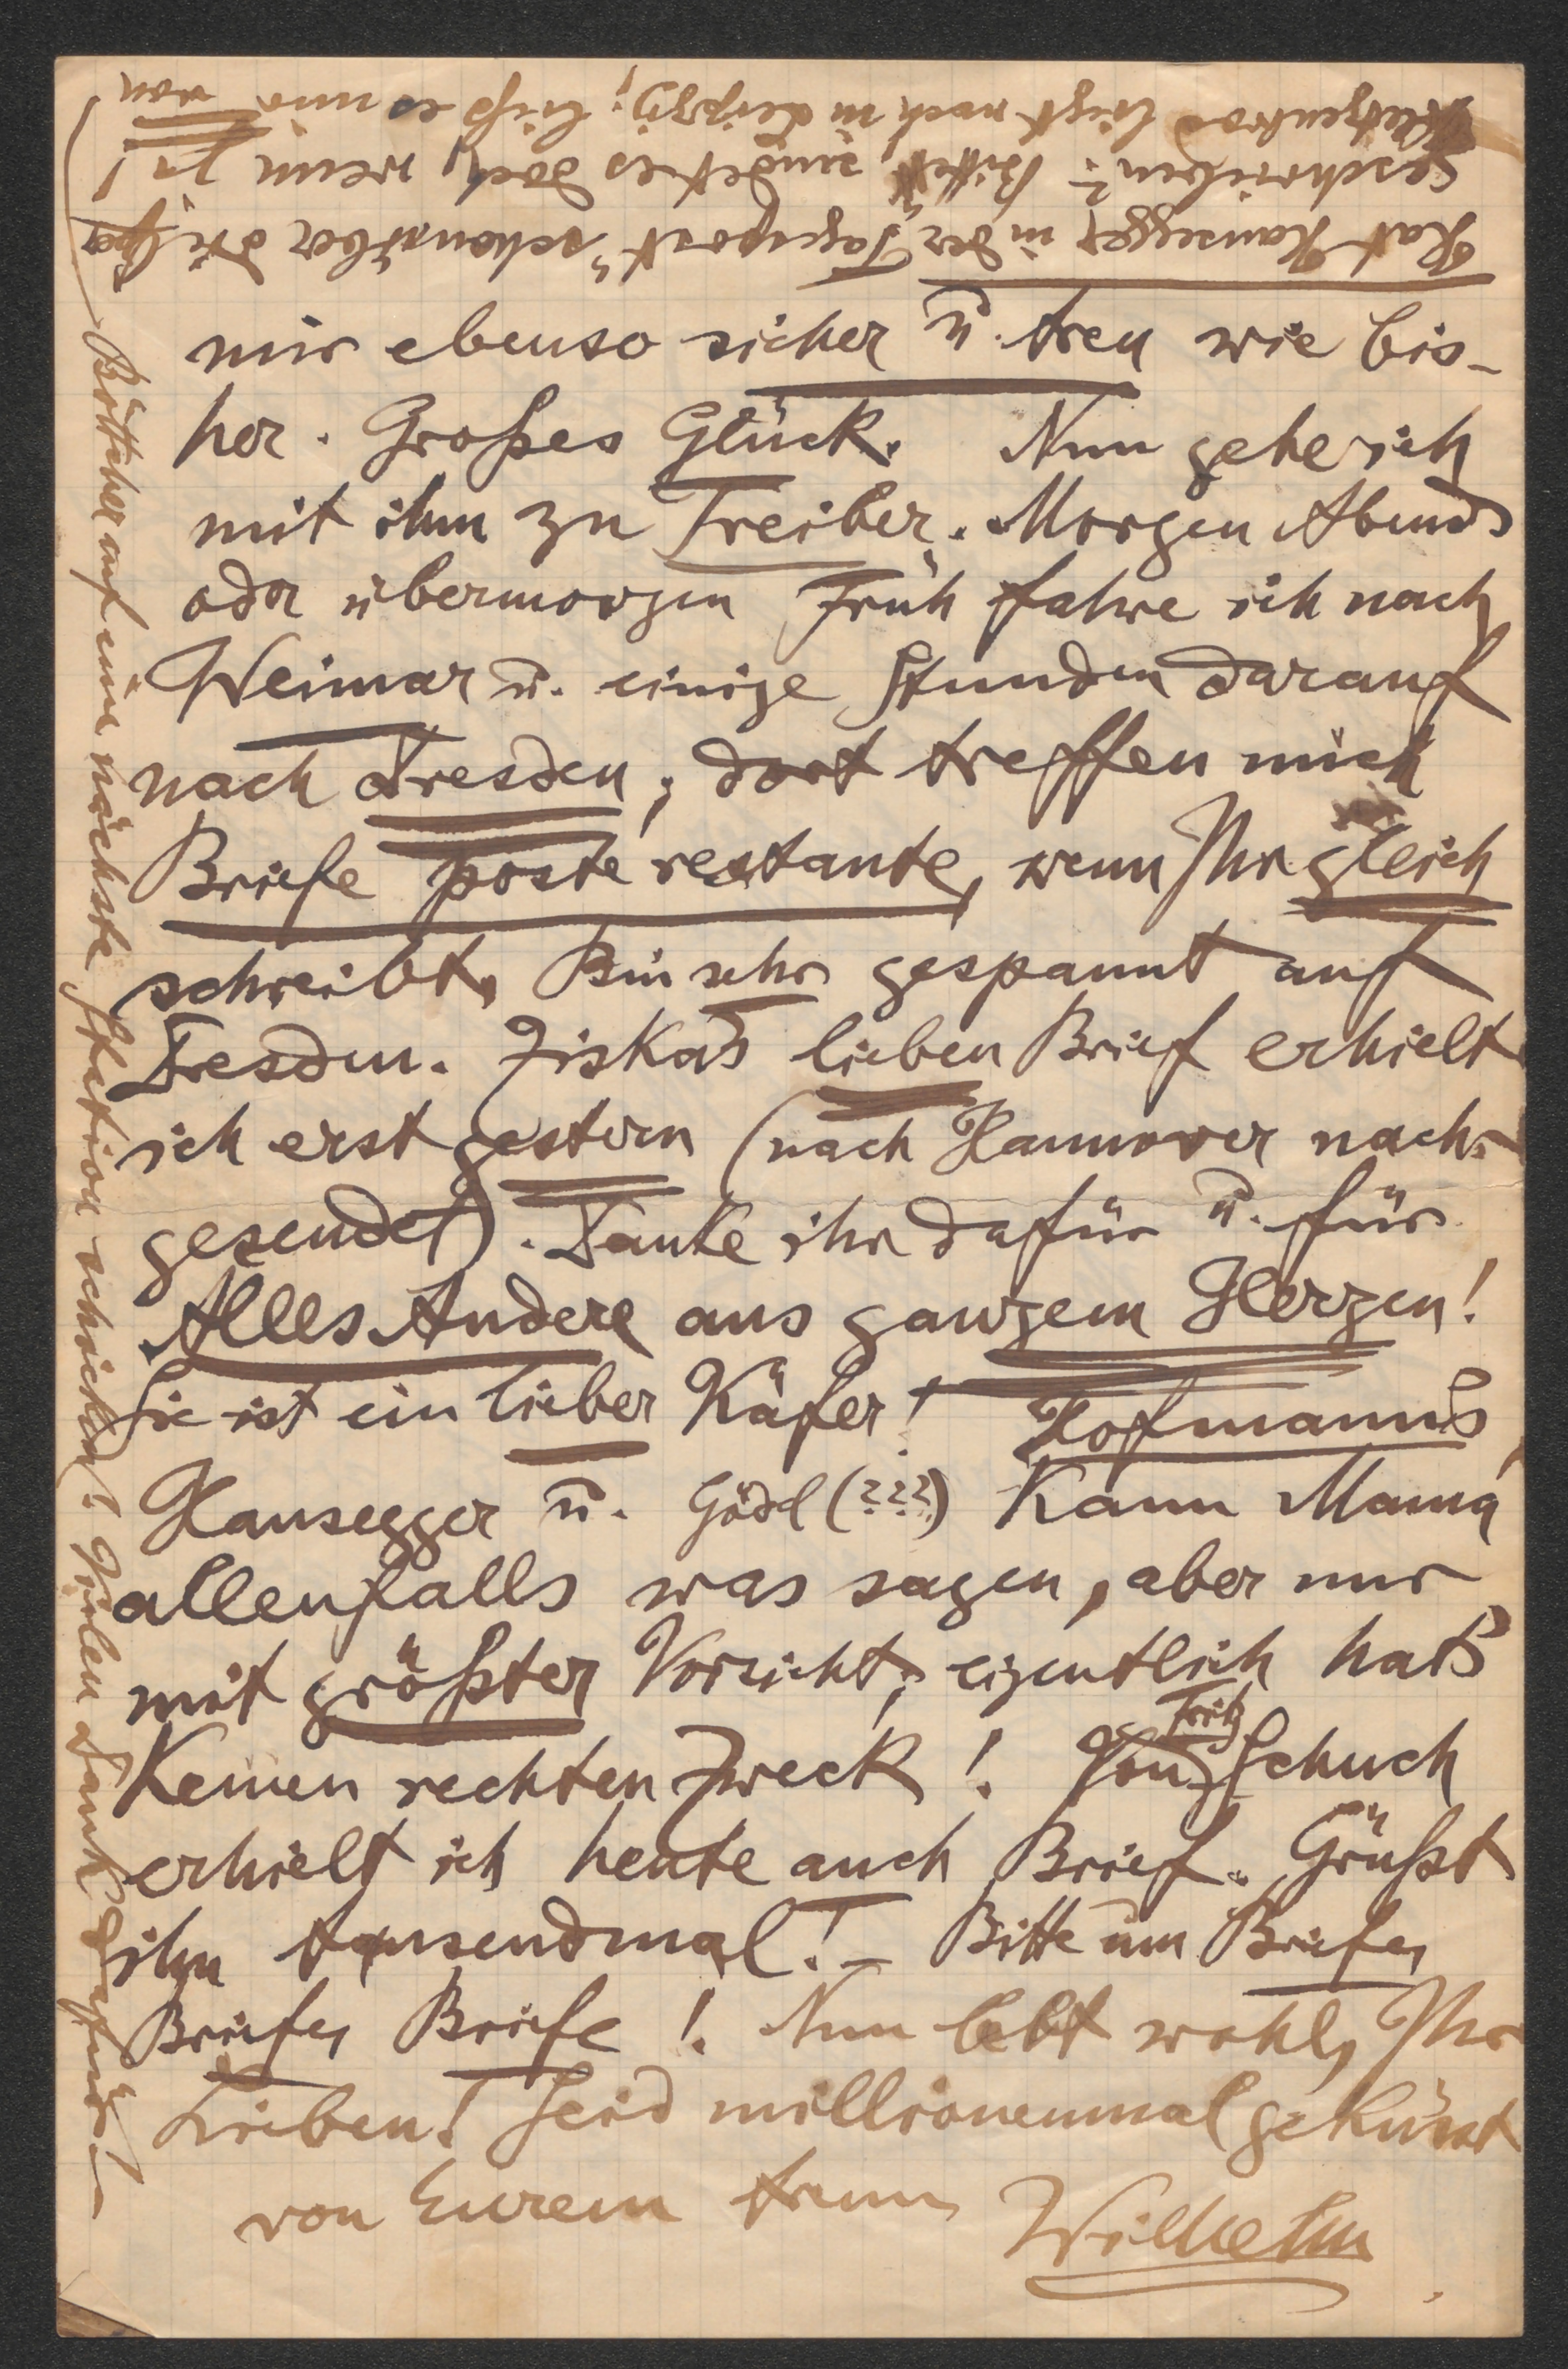 mir ebenso sicher u. treu wie bis-
her. Großes Glück. Nun gehe ich
mit ihm zu Treiber. Morgen Abends
oder übermorgen Früh fahre ich nach
Weimar u. einige Stunden darauf
nach Dresden; dort treffen mich
Briefe poste restante, wenn Ihr gleich
schreibt. Bin sehr gespannt auf
Dresden. Ziska's lieben Brief erhielt
ich erst gestern (nach Hannover nach-
gesendet). Danke ihr dafür u. für
Alles Andere aus ganzem Herzen!
Sie ist ein lieber Käfer! Hofmann's,
Hausegger u. Gödel (???) kann Mama
allenfalls was sagen, aber nur
mit größter Vorsicht; eigentlich hat's
keinen rechten Zweck! Von Fritz Schuch
erhielt ich heute auch Brief. Grüßt
ihn tausendmal! – Bitte um Briefe,
Briefe, Briefe! Nun lebt wohl, Ihr
Lieben! Seid millionenmal geküsst
von Eurem treuen Wilhelm.
Hat Hausegger in der "Tagespost" schon über die
geschrieben? Bitte, sendet es doch, wenn ja!
liegt noch in Leipzig; ließ es mir von
Böttcher auf eine nächste Station schicken. Vielen Dank dafür! –